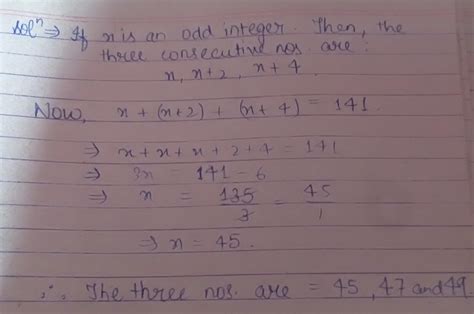 Solⁿ ⇒ If n is an odd integer. Then, the
three consecutive nos. are :
n, n+2, n+4.
Now, n + (n+2) + (n+4) = 141.
⇒ n+n+n+2+4 = 141
⇒ 3n = 141 - 6
⇒ n = 135/3 = 45/1
⇒ n = 45.
∴ The three nos. are = 45, 47 and 49.